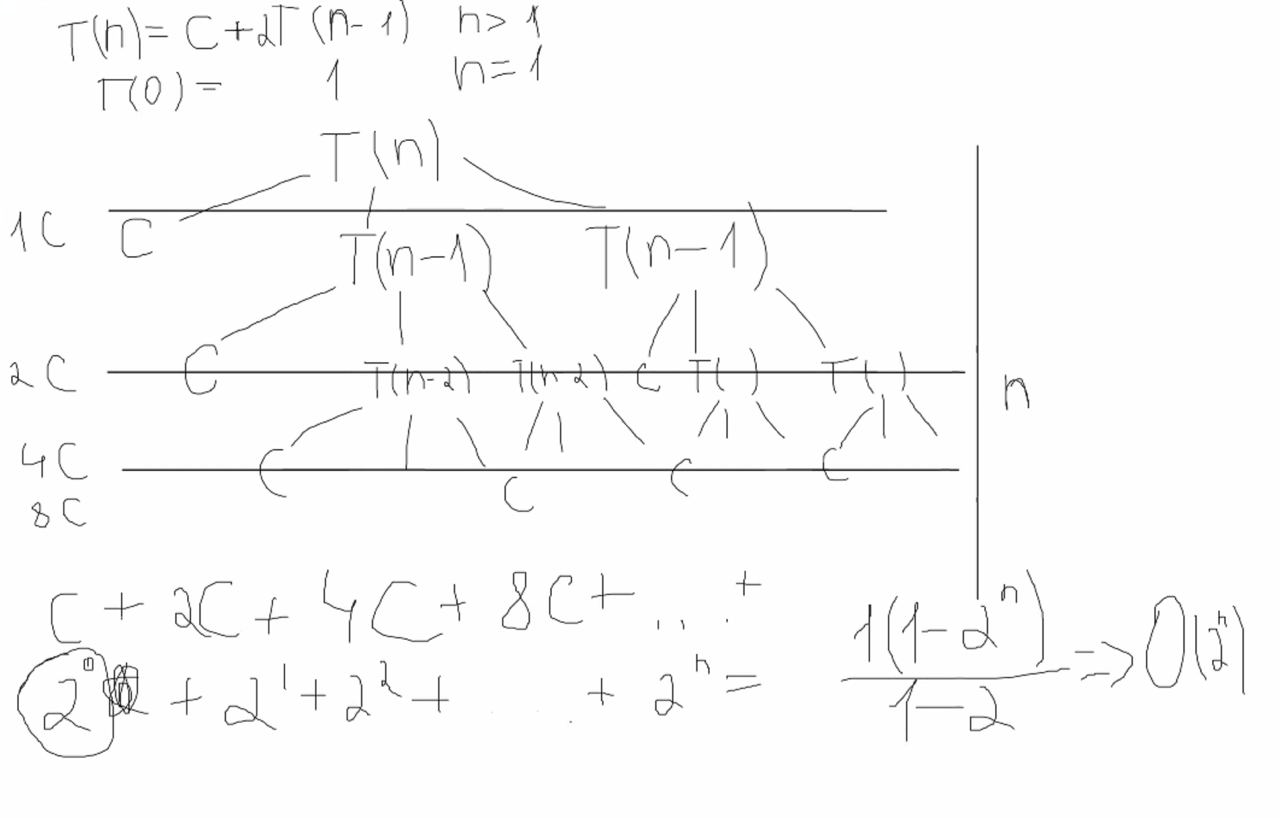 T(n)= C+2T(n-1) n>1
T(0)= 1 n=1
T(n)
1C C T(n-1) T(n-1)
2C C T(n-2) T(n-2) C T( ) T( )
n
4C C C C C
8C
C + 2C + 4C + 8C + ... +
2^0 + 2^1 + 2^2 + ... + 2^n = 1(1-2^n) / 1-2 => O(2^n)